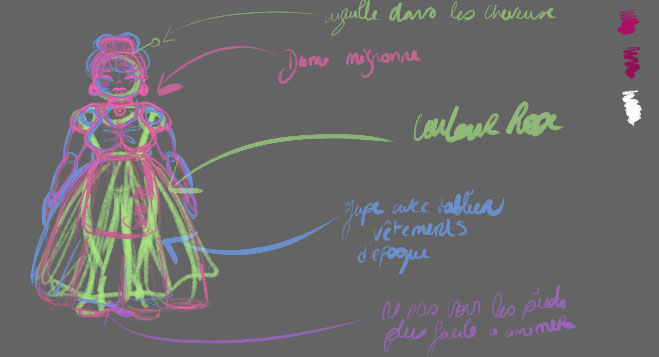 aiguille dans les cheveuse
Dame mignonne
Couleur Rose
jupe avec tablier
vêtements
d'époque
ne pas voir les pieds
plus facile a animer